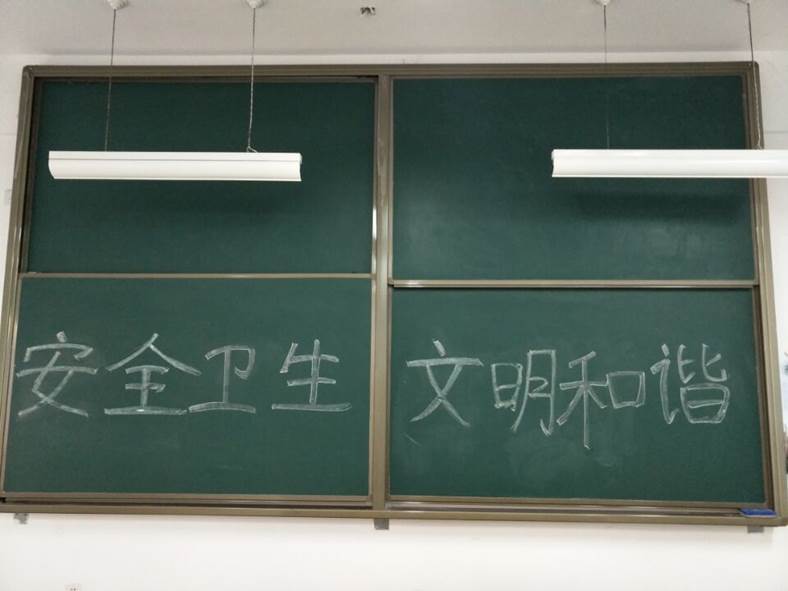 安全卫生 文明和谐